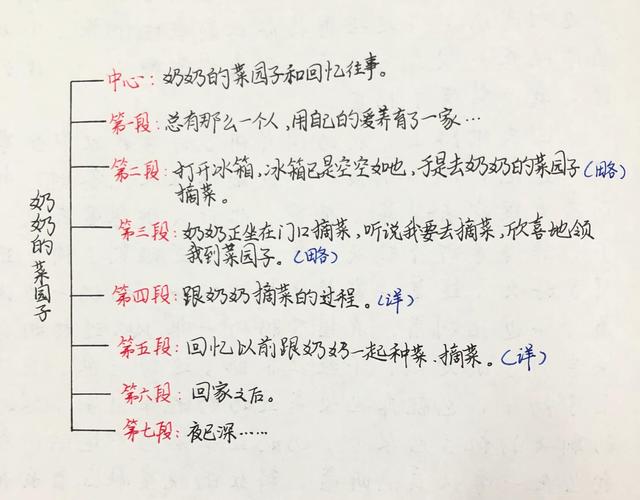 奶奶的菜园子
中心：奶奶的菜园子和回忆往事。
第一段：总有那么一个人，用自己的爱养育了一家…
第二段：打开冰箱，冰箱已是空空如也，于是去奶奶的菜园子（略）
摘菜。
第三段：奶奶正坐在门口摘菜，听说我要去摘菜，欣喜地领
我到菜园子。（略）
第四段：跟奶奶摘菜的过程。（详）
第五段：回忆以前跟奶奶一起种菜、摘菜。（详）
第六段：回家之后。
第七段：夜已深……